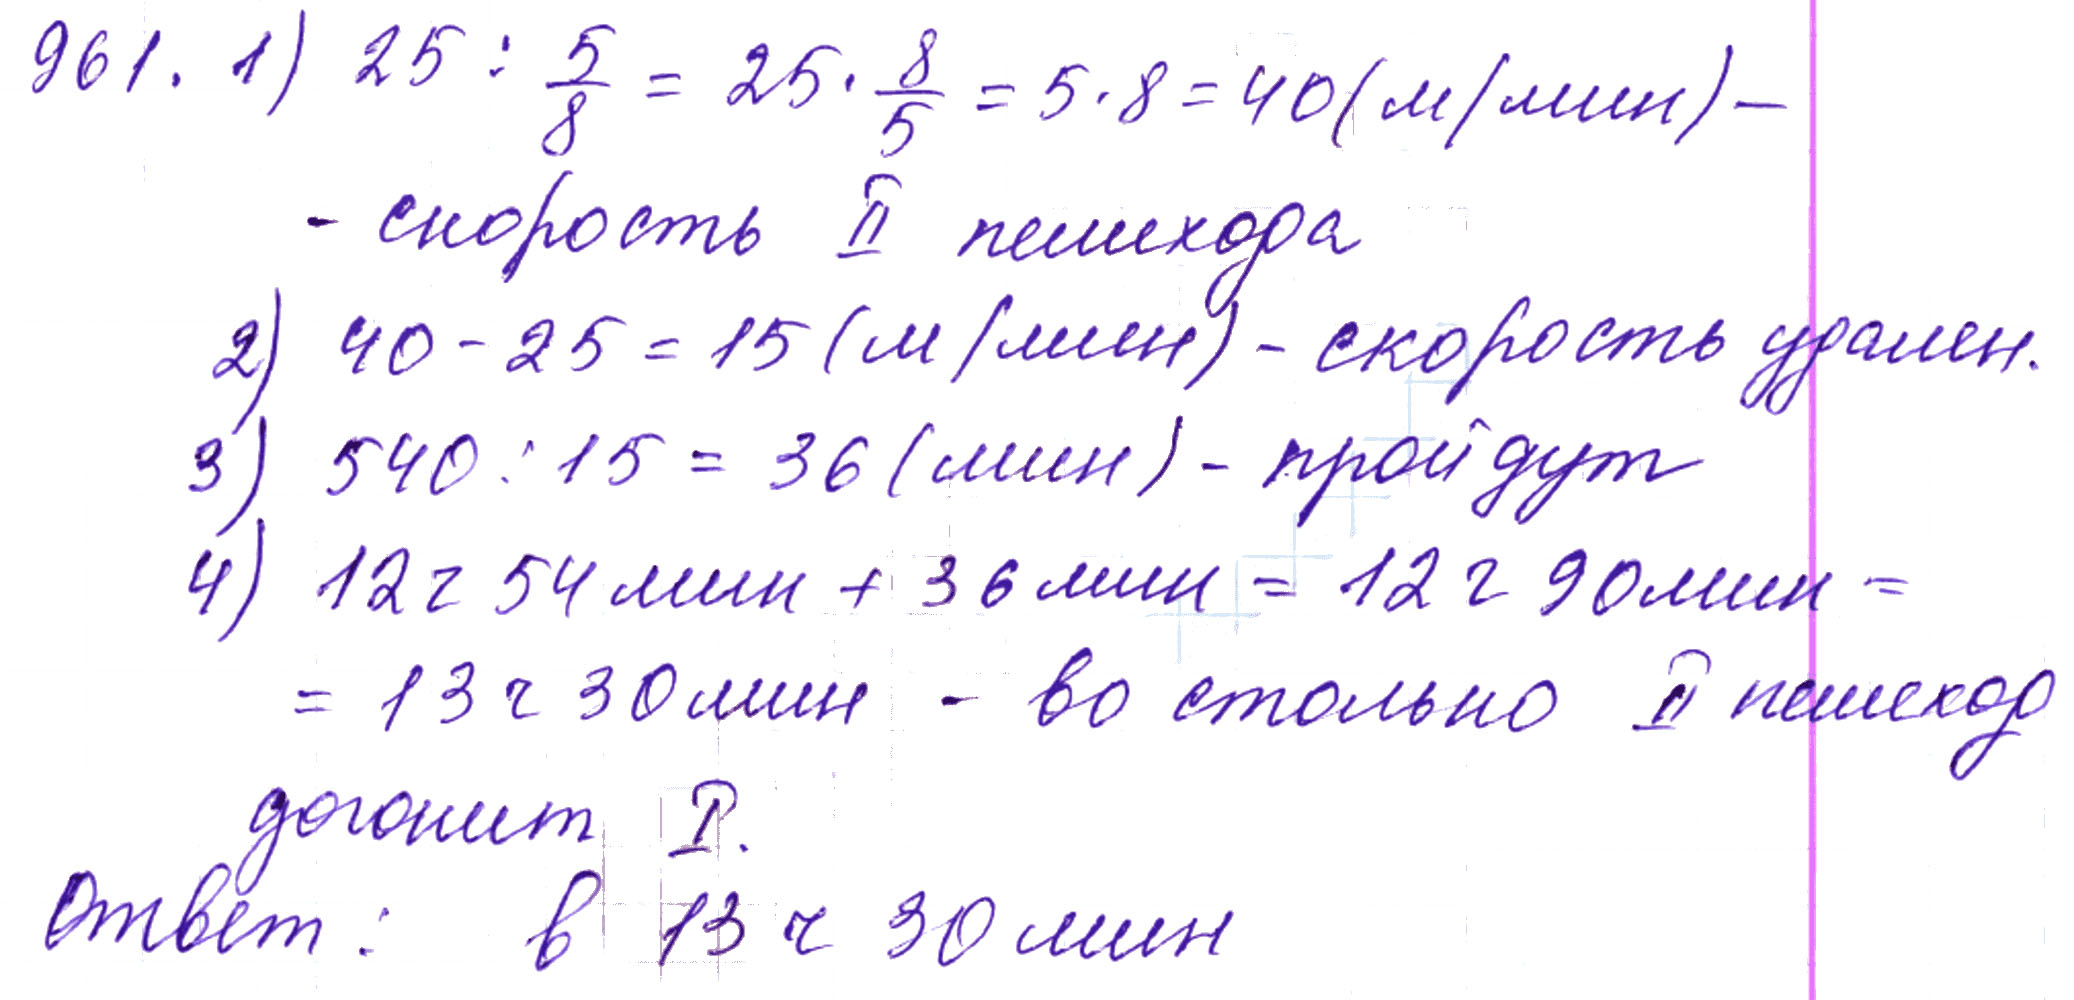 961. 1) 25 : 5/8 = 25 · 8/5 = 5 · 8 = 40 (м/мин) –
- скорость II пешехода
2) 40 - 25 = 15 (м/мин) - скорость удален.
3) 540 : 15 = 36 (мин) - пройдут
4) 12 ч 54 мин + 36 мин = 12 ч 90 мин =
= 13 ч 30 мин - во столько II пешеход
догонит I.
Ответ: в 13 ч 30 мин